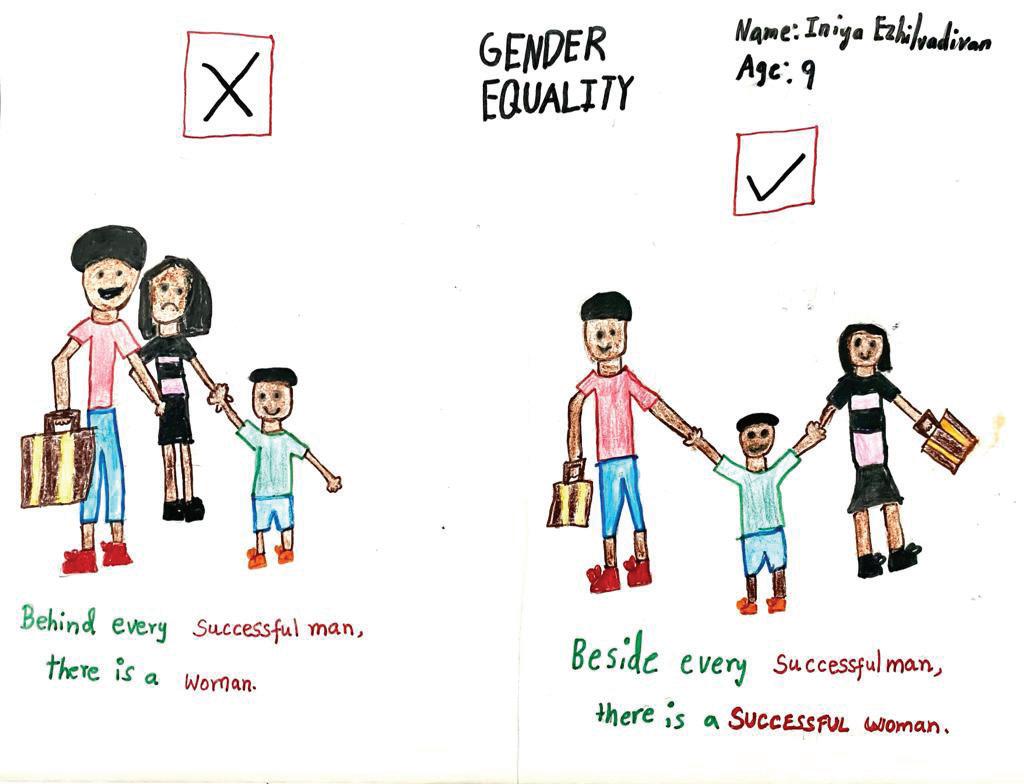 GENDER
EQUALITY
Name: Iniya Ezhilvadivan
Age: 9
Behind every Successful man,
there is a woman.
Beside every Successful man,
there is a SUCCESSFUL woman.